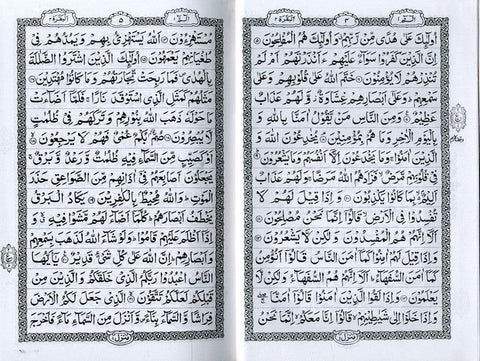 البقرة
اُولٰٓئِكَ عَلٰى هُدًى مِّنْ رَّبِّهِمْ وَاُولٰٓئِكَ هُمُ الْمُفْلِحُوْنَ
اِنَّ الَّذِيْنَ كَفَرُوْا سَوَآءٌ عَلَيْهِمْ ءَاَنْذَرْتَهُمْ اَمْ لَمْ
تُنْذِرْهُمْ لَا يُؤْمِنُوْنَ خَتَمَ اللّٰهُ عَلٰى قُلُوْبِهِمْ وَعَلٰى
سَمْعِهِمْ وَعَلٰٓى اَبْصَارِهِمْ غِشَاوَةٌ وَّلَهُمْ عَذَابٌ
عَظِيْمٌ وَمِنَ النَّاسِ مَنْ يَّقُوْلُ اٰمَنَّا بِاللّٰهِ وَ
بِالْيَوْمِ الْاٰخِرِ وَمَا هُمْ بِمُؤْمِنِيْنَ يُخٰدِعُوْنَ اللّٰهَ وَ
الَّذِيْنَ اٰمَنُوْا وَمَا يَخْدَعُوْنَ اِلَّآ اَنْفُسَهُمْ وَمَا يَشْعُرُوْنَ
فِيْ قُلُوْبِهِمْ مَّرَضٌ فَزَادَهُمُ اللّٰهُ مَرَضًا وَلَهُمْ عَذَابٌ
اَلِيْمٌ بِمَا كَانُوْا يَكْذِبُوْنَ وَاِذَا قِيْلَ لَهُمْ لَا
تُفْسِدُوْا فِي الْاَرْضِ قَالُوْٓا اِنَّمَا نَحْنُ مُصْلِحُوْنَ
اَلَآ اِنَّهُمْ هُمُ الْمُفْسِدُوْنَ وَلٰكِنْ لَّا يَشْعُرُوْنَ
وَاِذَا قِيْلَ لَهُمْ اٰمِنُوْا كَمَآ اٰمَنَ النَّاسُ قَالُوْٓا اَنُؤْمِنُ
كَمَآ اٰمَنَ السُّفَهَآءُ اَلَآ اِنَّهُمْ هُمُ السُّفَهَآءُ وَلٰكِنْ لَّا
يَعْلَمُوْنَ وَاِذَا لَقُوا الَّذِيْنَ اٰمَنُوْا قَالُوْٓا اٰمَنَّا
وَاِذَا خَلَوْا اِلٰى شَيٰطِيْنِهِمْ قَالُوْٓا اِنَّا مَعَكُمْ اِنَّمَا نَحْنُ
البقرة
مُسْتَهْزِءُوْنَ اَللّٰهُ يَسْتَهْزِئُ بِهِمْ وَيَمُدُّهُمْ فِيْ
طُغْيَانِهِمْ يَعْمَهُوْنَ اُولٰٓئِكَ الَّذِيْنَ اشْتَرَوُا الضَّلٰلَةَ
بِالْهُدٰى فَمَا رَبِحَتْ تِّجَارَتُهُمْ وَمَا كَانُوْا مُهْتَدِيْنَ
مَثَلُهُمْ كَمَثَلِ الَّذِي اسْتَوْقَدَ نَارًا فَلَمَّآ اَضَآءَتْ
مَا حَوْلَهٗ ذَهَبَ اللّٰهُ بِنُوْرِهِمْ وَتَرَكَهُمْ فِيْ ظُلُمٰتٍ
لَّا يُبْصِرُوْنَ صُمٌّۢ بُكْمٌ عُمْيٌ فَهُمْ لَا يَرْجِعُوْنَ
اَوْ كَصَيِّبٍ مِّنَ السَّمَآءِ فِيْهِ ظُلُمٰتٌ وَّرَعْدٌ وَّبَرْقٌ
يَجْعَلُوْنَ اَصَابِعَهُمْ فِيْٓ اٰذَانِهِمْ مِّنَ الصَّوَاعِقِ حَذَرَ
الْمَوْتِ وَاللّٰهُ مُحِيْطٌۢ بِالْكٰفِرِيْنَ يَكَادُ الْبَرْقُ
يَخْطَفُ اَبْصَارَهُمْ كُلَّمَآ اَضَآءَ لَهُمْ مَّشَوْا فِيْهِ وَ
اِذَآ اَظْلَمَ عَلَيْهِمْ قَامُوْا وَلَوْ شَآءَ اللّٰهُ لَذَهَبَ بِسَمْعِهِمْ
وَاَبْصَارِهِمْ اِنَّ اللّٰهَ عَلٰى كُلِّ شَيْءٍ قَدِيْرٌ يٰٓاَيُّهَا
النَّاسُ اعْبُدُوْا رَبَّكُمُ الَّذِيْ خَلَقَكُمْ وَالَّذِيْنَ مِنْ
قَبْلِكُمْ لَعَلَّكُمْ تَتَّقُوْنَ الَّذِيْ جَعَلَ لَكُمُ الْاَرْضَ
فِرَاشًا وَّالسَّمَآءَ بِنَآءً وَّاَنْزَلَ مِنَ السَّمَآءِ مَآءً فَاَخْرَجَ